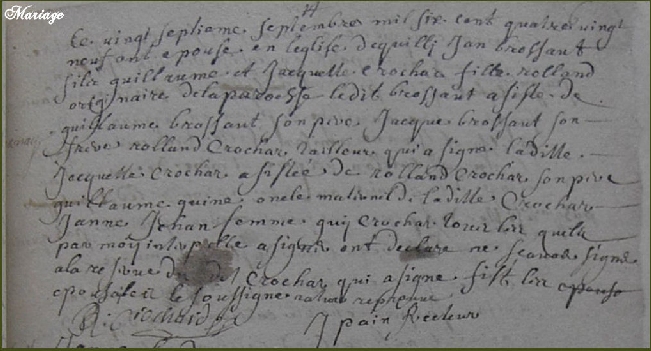 Mariage
Le vingt septieme septembre mil six cent quatre vingt
neuf ont epousé en leglise de quilli Jan brossaut
fils guillaume et Jacquette Crochar fille rolland
originaire de la paroesse ledit brossaut asiste de
guillaume brossaut son pere Jacque brossaut son
frere rolland Crochar tailleur qui a signe laditte
Jacquette Crochar asistée de rolland Crochar son pere
guillaume quine oncle maternel de laditte Crochar
Janne Jehan femme guy Crochar tous les quels
par moy interpelle a signer ont declare ne scavoir signe
a la reserve du dit Crochar qui a signe fist les epouso
epousailles le soussigne
R Crochard
J pain Recteur